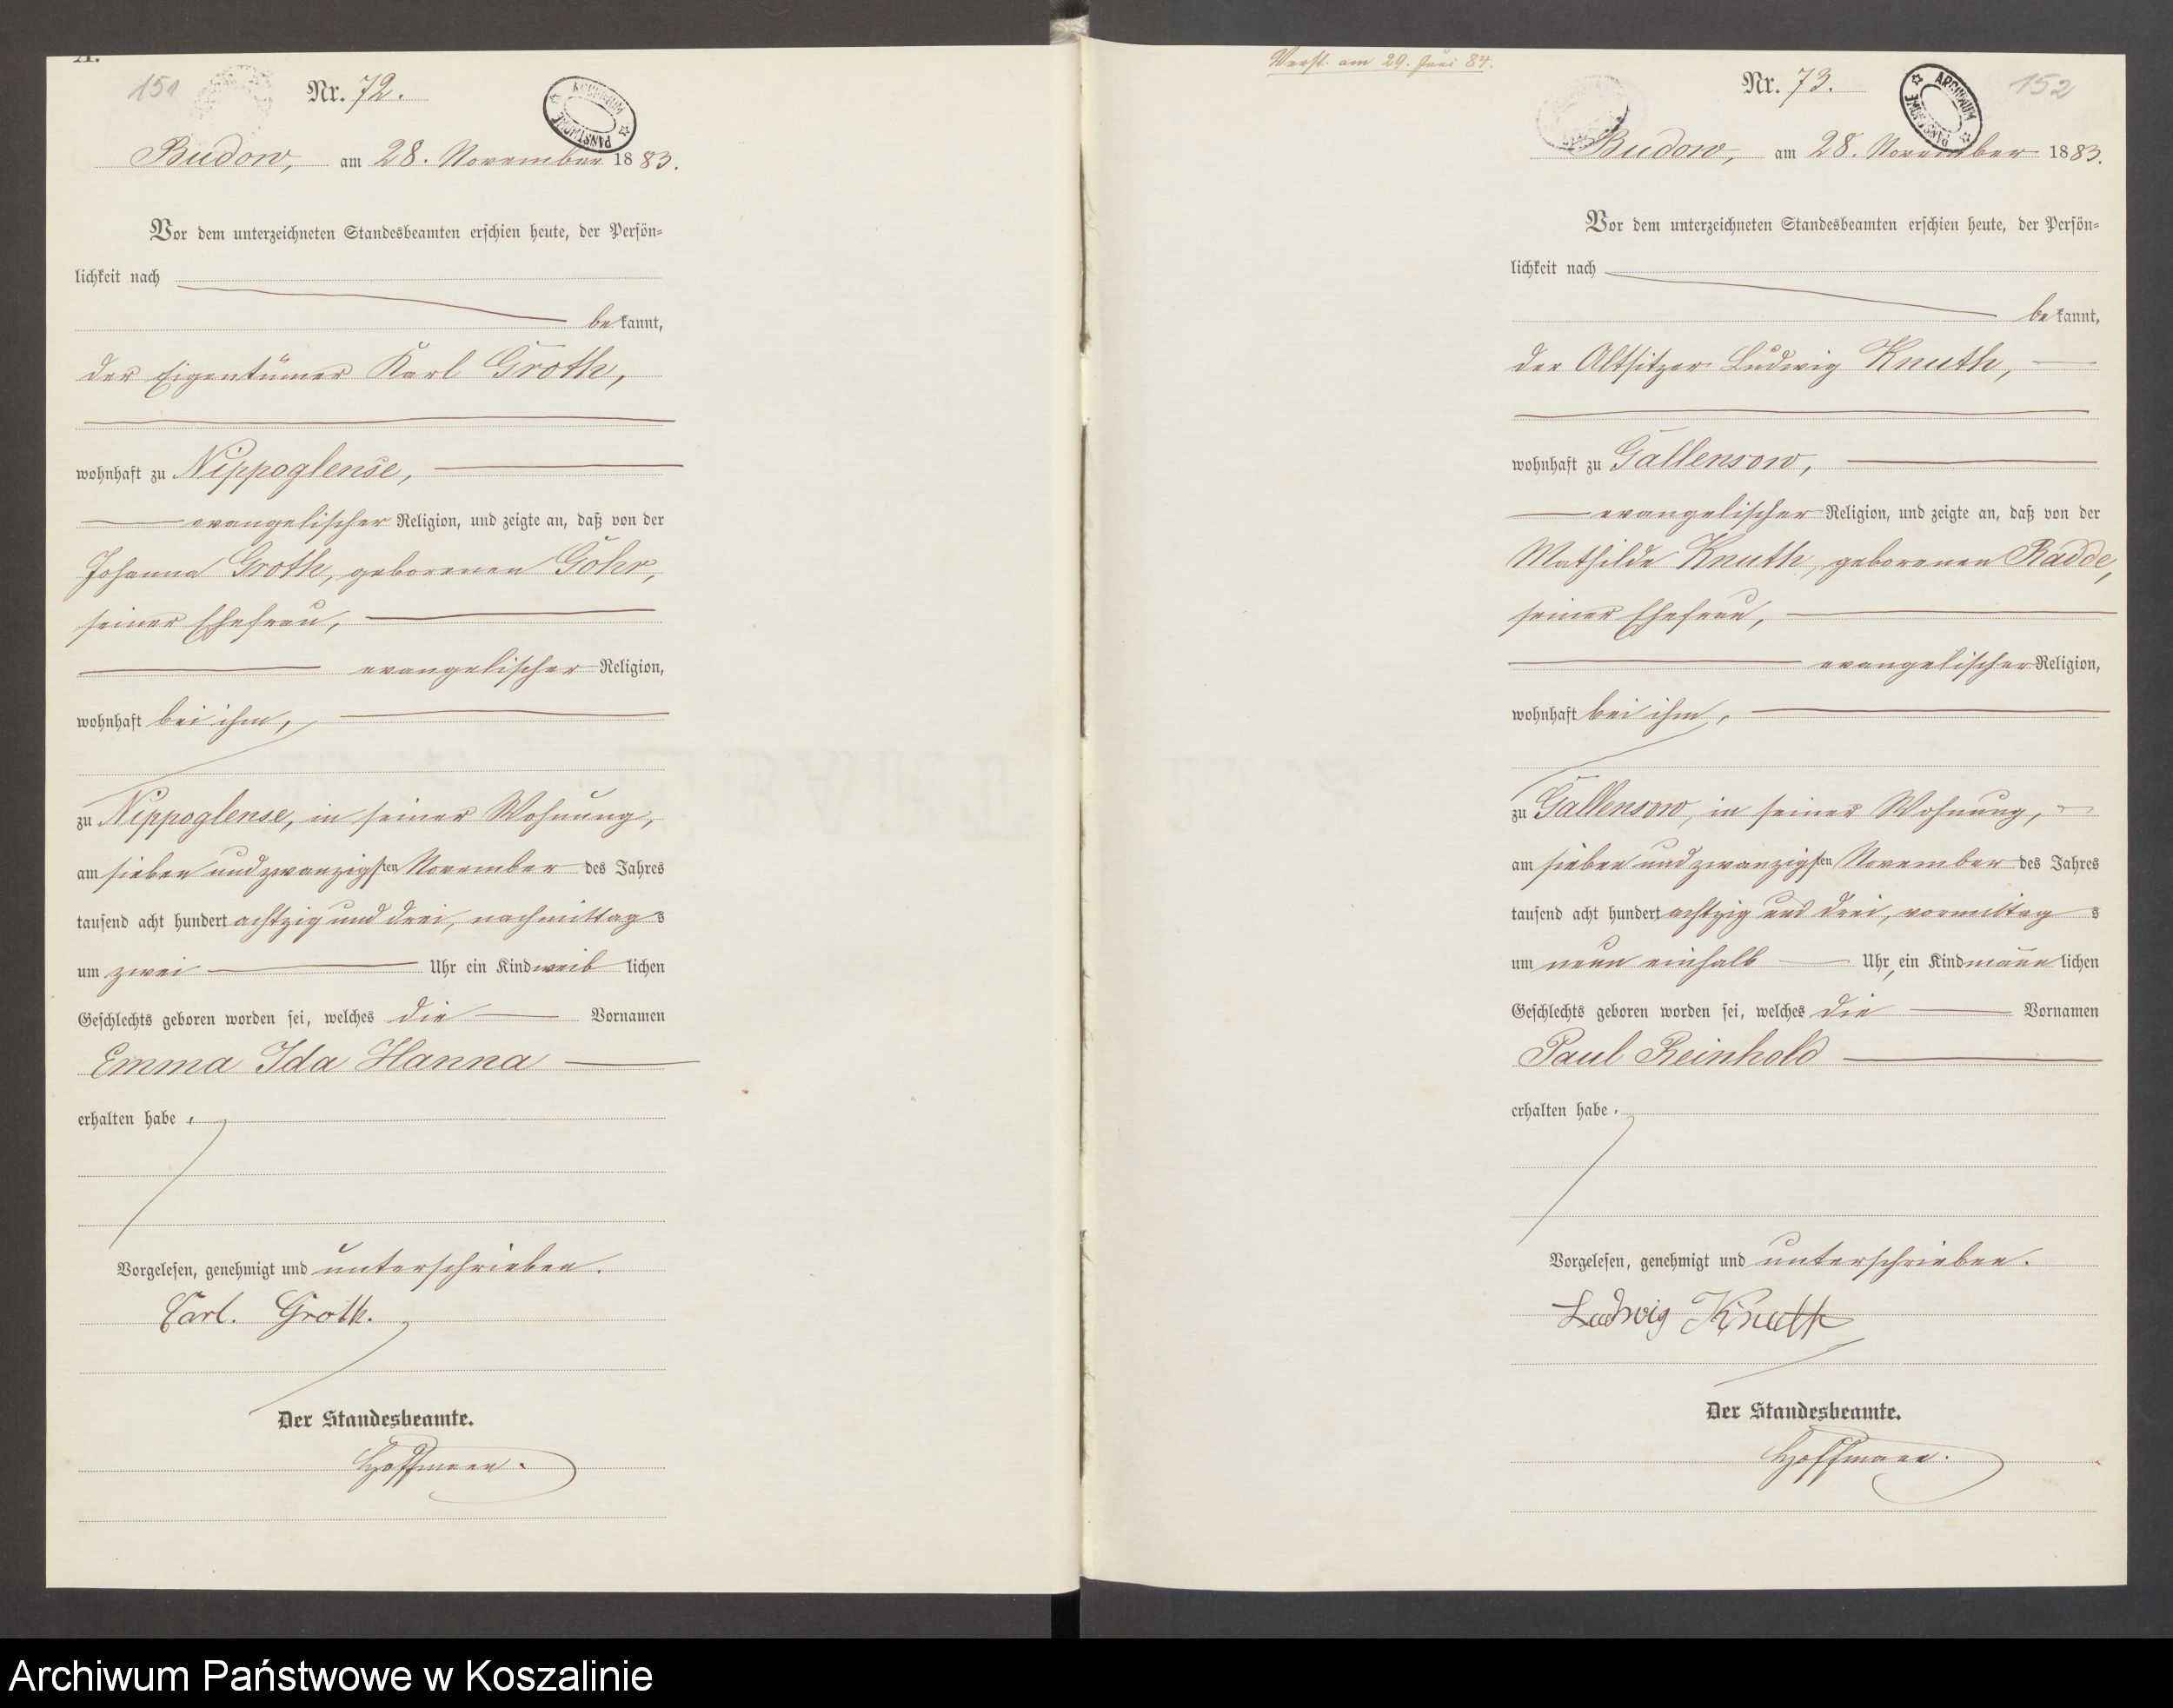 A.
151
Nr. 72.
ARCHIWUM PAŃSTWOWE
Budow, am 28. November 1883.
Vor dem unterzeichneten Standesbeamten erschien heute, der Persön-
lichkeit nach
bekannt,
der Eigentümer Karl Groth,
wohnhaft zu Nippoglense,
evangelischer Religion, und zeigte an, daß von der
Johanna Groth, geborenen Göhr,
seiner Ehefrau,
evangelischer Religion,
wohnhaft bei ihm,
zu Nippoglense, in seiner Wohnung,
am sieben und zwanzigsten November des Jahres
tausend acht hundert achtzig und drei, nachmittags
um zwei Uhr ein Kind weiblichen
Geschlechts geboren worden sei, welches die Vornamen
Emma Ida Hanna
erhalten habe.
Vorgelesen, genehmigt und unterschrieben.
Carl. Groth.
Der Standesbeamte.
Hoffmann.
Verst. am 29. Juni 84.
Nr. 73.
152
ARCHIWUM PAŃSTWOWE
Budow, am 28. November 1883.
Vor dem unterzeichneten Standesbeamten erschien heute, der Persön-
lichkeit nach
bekannt,
der Altsitzer Ludwig Knuth,
wohnhaft zu Gallensow,
evangelischer Religion, und zeigte an, daß von der
Mathilde Knuth, geborenen Radde,
seiner Ehefrau,
evangelischer Religion,
wohnhaft bei ihm,
zu Gallensow, in seiner Wohnung,
am sieben und zwanzigsten November des Jahres
tausend acht hundert achtzig und drei, vormittags
um neun einhalb Uhr, ein Kind männlichen
Geschlechts geboren worden sei, welches die Vornamen
Paul Reinhold
erhalten habe.
Vorgelesen, genehmigt und unterschrieben.
Ludwig Knuth
Der Standesbeamte.
Hoffmann.
Archiwum Państwowe w Koszalinie